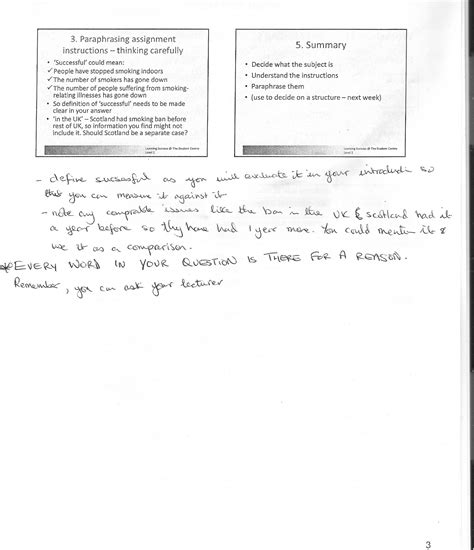 3. Paraphrasing assignment
instructions – thinking carefully
• 'Successful' could mean:
✓People have stopped smoking indoors
✓The number of smokers has gone down
✓The number of people suffering from smoking-
relating illnesses has gone down
• So definition of 'successful' needs to be made
clear in your answer
• 'in the UK' – Scotland had smoking ban before
rest of UK, so information you find might not
include it. Should Scotland be a separate case?
Learning Success @ The Student Centre
Level 2
5. Summary
• Decide what the subject is
• Understand the instructions
• Paraphrase them
• (use to decide on a structure – next week)
Learning Success @ The Student Centre
Level 2
- define successful as you will evaluate it in your introduction so
that you can measure it against it
- note any comprable issues like the ban in the UK & scotland had it
a year before so they have had 1 year more. You could mention it &
use it as a comparison.
* EVERY WORD IN YOUR QUESTION IS THERE FOR A REASON.
Remember, you can ask your lecturer
3